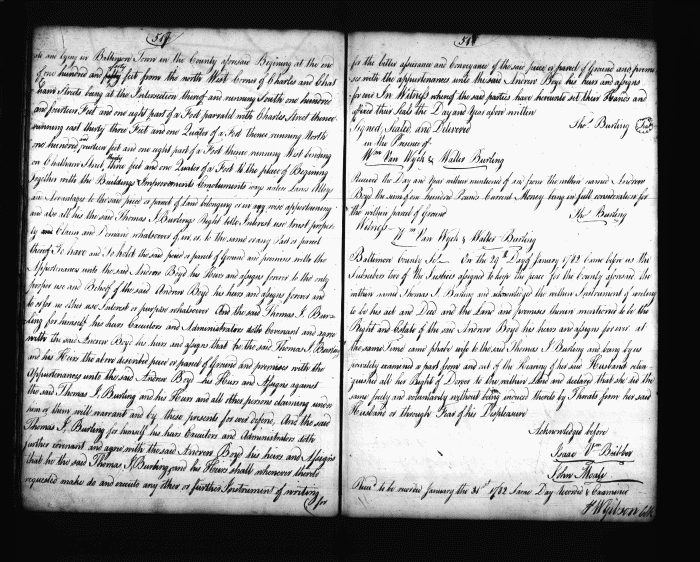 517
ate and lying in Baltimore Town in the County aforesaid Begining at the one
of one hundred and fifty feet from the north West Corner of Charles and Chat
forty
ham Streets being at the Intersection thereof and running South one hundred
and fourteen Feet and one eight part of a Foot paralel with Charles Street thence
running east thirty three Feet and one Quater of a Foot thence running North
one hundred fourteen Feet and one eight part of a Foot thence running West binding
on Chatham Street Thirty three feet and one Quater of a Foot to the place of Begining
Together with the Buildings Improvements Conclumients ways waters Lanes Alleys
and Advantages to the said piece or parcel of Land belonging or in any wise appertaining
and also all his the said Thomas J. Burlings Right Title Interest use trust proper
ty and Claim and Demand whatsoever of in or to the same or any Part or parcel
thereof To have and To hold the said piece or parcel of Ground and premises with the
Appertenances unto the said Andrew Boyd his Heirs and assigns forever to the only
proper use and Behoof of the said Andrew Boyd his heirs and assigns forever and
to or for no other use Interest or purpose whatsoever And the said Thomas J. Bur=
ling for himself his heirs Executors and Administrators doth Covenant and agree
with the said Andrew Boyd his heirs and assigns that he the said Thomas J. Burling
and his Heirs the above described piece or parcel of Ground and premises with the
Appertenances unto the said Andrew Boyd his Heirs and Assigns against
the said Thomas J. Burling and his Heirs and all other persons claiming under
him or them will warrant and by these presents for ever defend. And the said
Thomas J. Burling for himself his heirs Executors and Administrators doth
further covenant and agree with the said Andrew Boyd his heirs and Assigns
that he the said Thomas J Burling and his Heirs shall whenever thereto
requested make do and execute any other or further Instrument of writing
for
for the better assurance and conveyance of the said piece or parcel of Ground and premi
ses with the appurtenances unto the said Andrew Boyd his heirs and assigns
for ever In Witness whereof the said parties have hereunto set their Hands and
affixed their Seals the Day and Year above written
Signed, Sealed and Delivered
Thos. Burling Seal
in the Presence of
Wm Van Wyck & Walter Burling
Received the Day and Year within mentioned of and from the within named Andrew
Boyd the sum of one hundred Pounds Current Money being in full consideration for
the within parcel of Ground
Thos. Burling
Witness
Wm Van Wyck & Walter Burling
Baltimore County Sct. On the 29th Day of January 1782 Came before us the
Subscribers two of the Justices assigned to keep the peace for the County aforesaid the
within named Thomas J. Burling and acknowledged the within Instrument of writing
to be his act and Deed and the Land and Premises therein mentioned to be the
Right and Estate of the said Andrew Boyd his heirs and assigns forever at
the same Time came wife to the said Thomas J Burling and being by us
privately examined apart from and out of the Hearing of her said Husband relin
quished all her Right of Dower to the within Land and declared that she did the
same freely and voluntarily without being induced thereto by Threats from her said
Husband or through Fear of his Displeasure
Acknowledged before
Isaac Vn Bibber
John Moale
Recd. to be recorded January the 31st 1782 Same Day Recorded & Examined